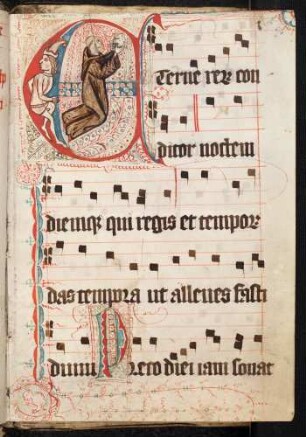 Eterne rerꝝ con
ditor noctem
diemqꝫ qui regis et tempor
das tempora ut alleues fasti
dium Preco diei iam sonat